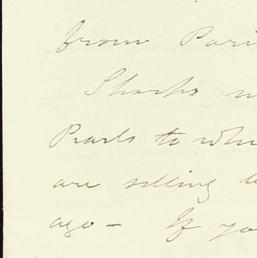 from Pari
Sharks
Pearls to whi
are selling
ago – If yo